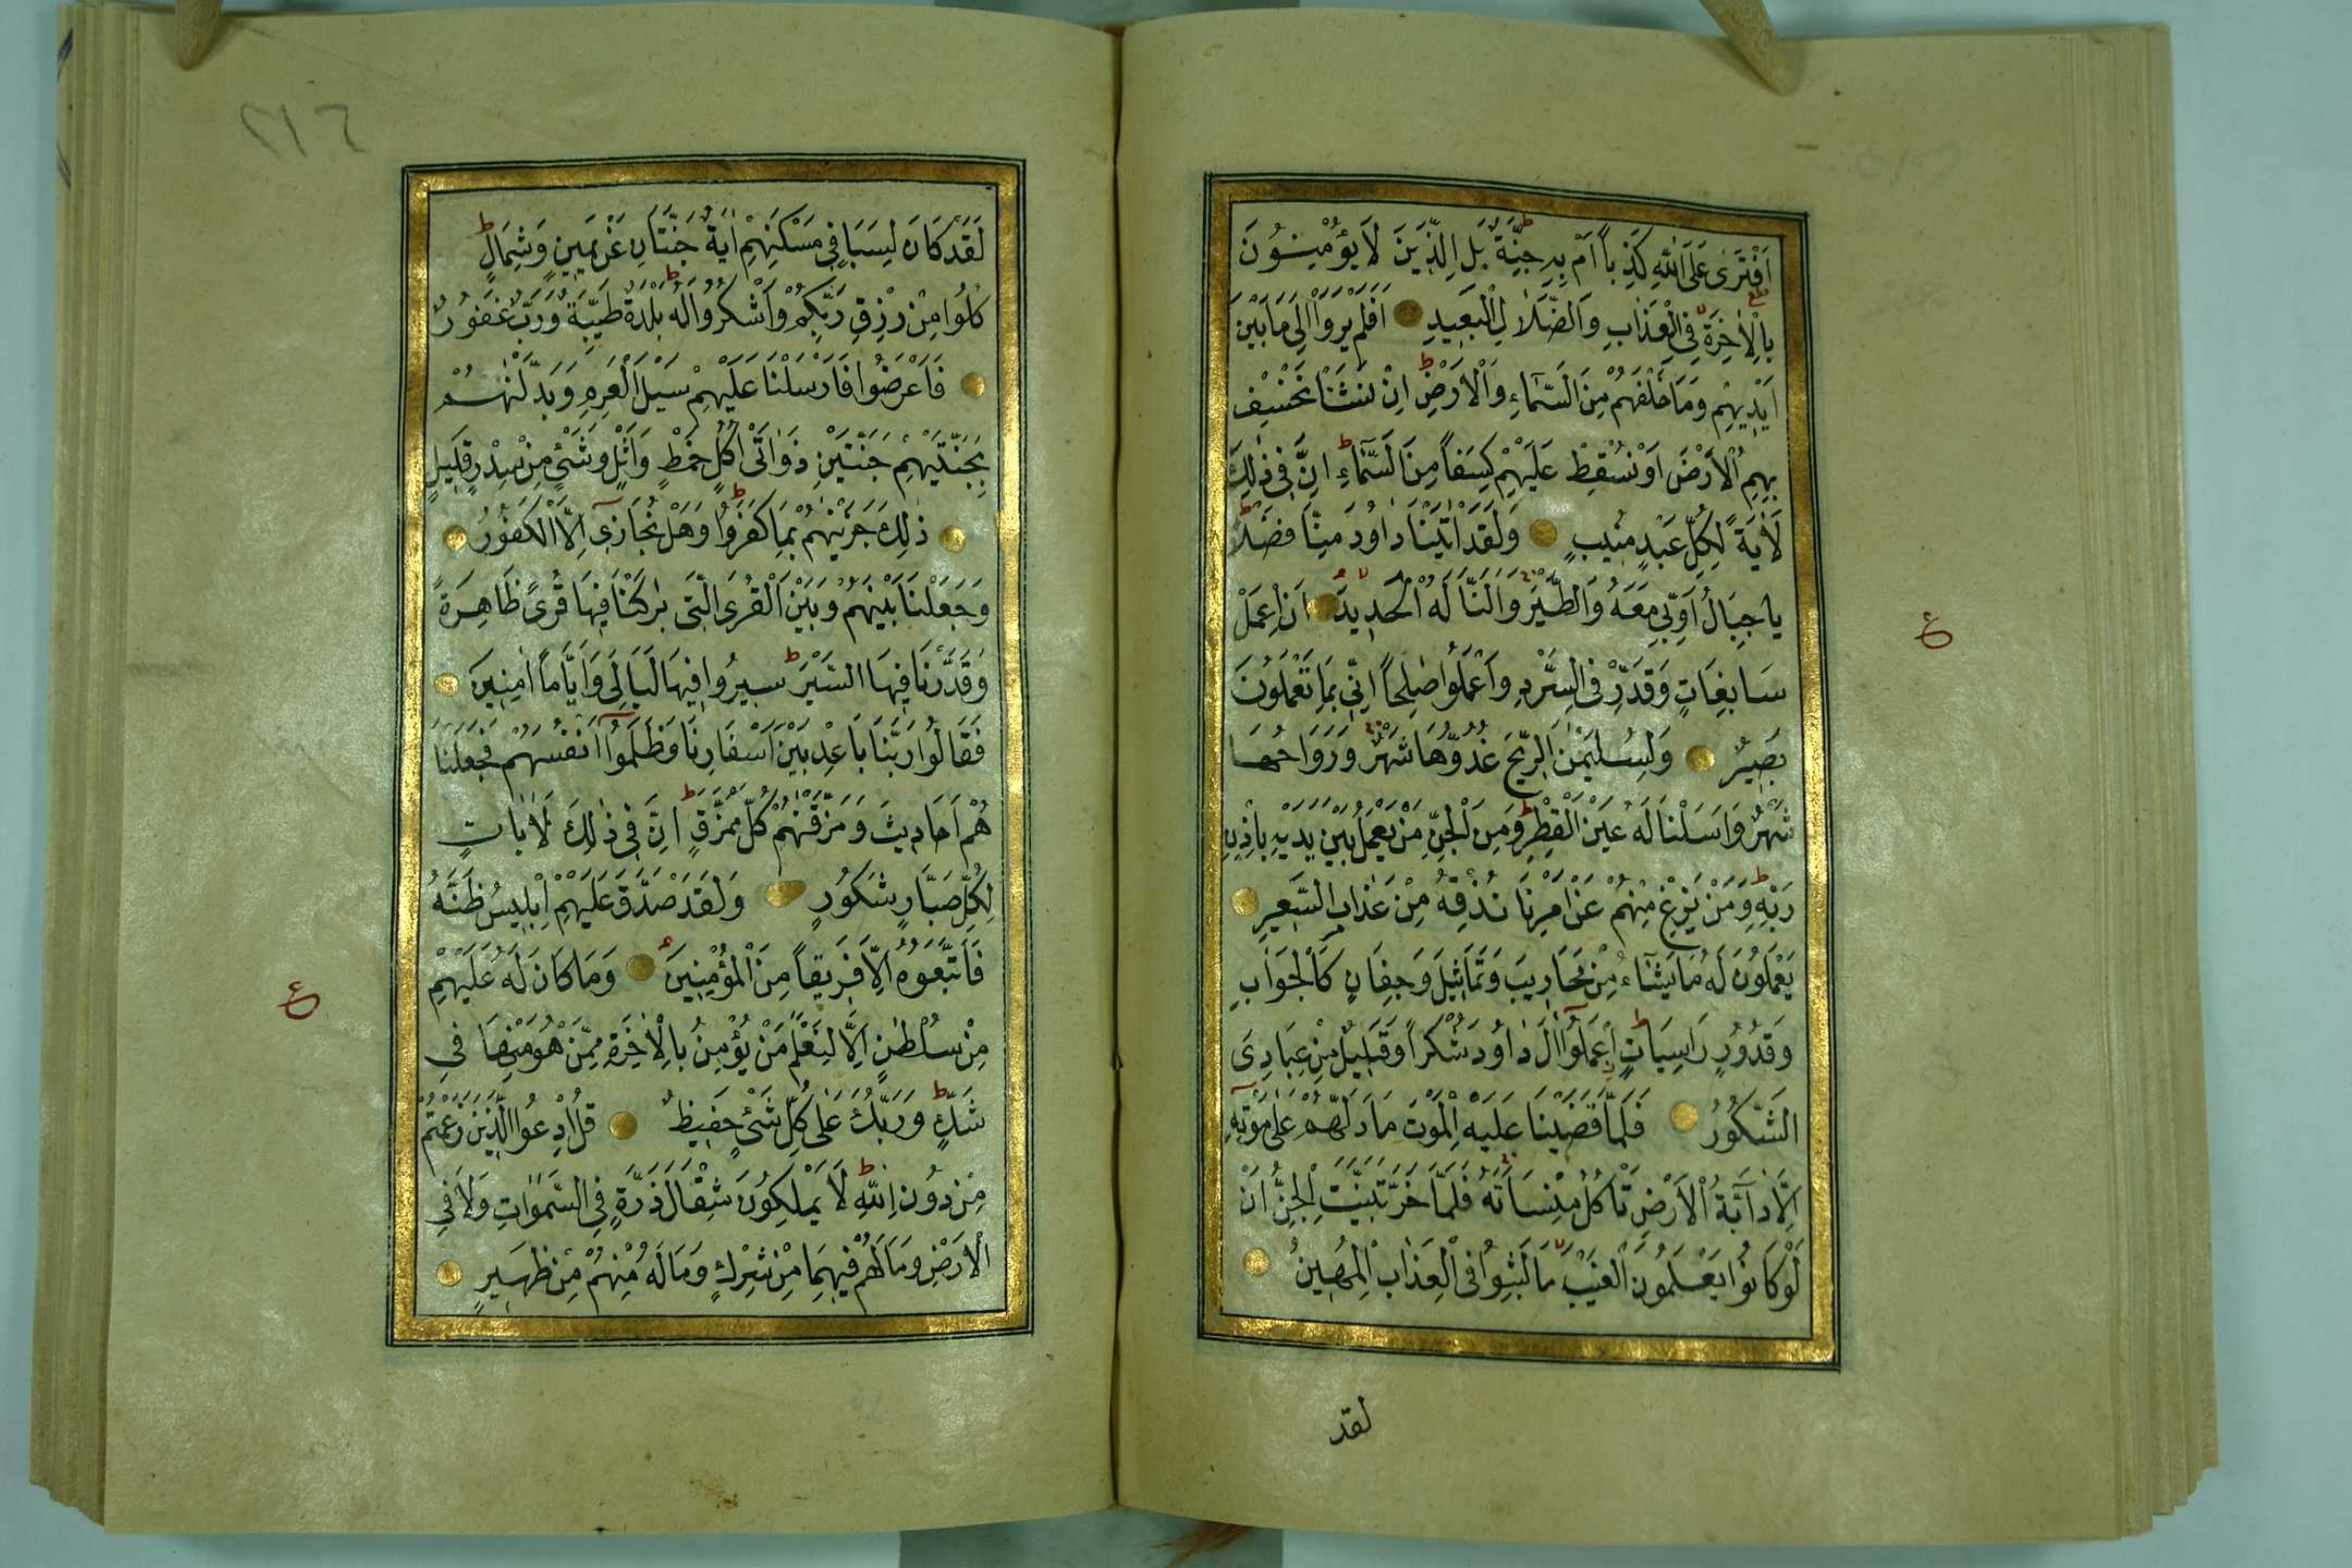 اَفْتَرٰى عَلَى اللّٰهِ كَذِباً اَمْ بِهِ جِنَّةٌ بَلِ الَّذِينَ لَا يُؤْمِنُونَ
بِالْاٰخِرَةِ فِي الْعَذَابِ وَالضَّلَالِ الْبَعِيدِ اَفَلَمْ يَرَوْا اِلٰى مَا بَيْنَ
اَيْدِيهِمْ وَمَا خَلْفَهُمْ مِنَ السَّمَاءِ وَالْاَرْضِ اِنْ نَشَأْ نَخْسِفْ
بِهِمُ الْاَرْضَ اَوْ نُسْقِطْ عَلَيْهِمْ كِسَفاً مِنَ السَّمَاءِ اِنَّ فِي ذٰلِكَ
لَاٰيَةً لِكُلِّ عَبْدٍ مُنِيبٍ وَلَقَدْ اٰتَيْنَا دَاوُدَ مِنَّا فَضْلاً
يا جِبَالُ اَوِّبِي مَعَهُ وَالطَّيْرَ وَاَلَنَّا لَهُ الْحَدِيدَ اَنِ اعْمَلْ
سَابِغَاتٍ وَقَدِّرْ فِي السَّرْدِ وَاعْمَلُوا صٰلِحاً اِنِّي بِمَا تَعْمَلُونَ
بَصِيرٌ وَلِسُلَيْمٰنَ الرِّيحَ غُدُوُّهَا شَهْرٌ وَرَوَاحُهَا
شَهْرٌ وَاَسَلْنَا لَهُ عَيْنَ الْقِطْرِ وَمِنَ الْجِنِّ مَنْ يَعْمَلُ بَيْنَ يَدَيْهِ بِاِذْنِ
رَبِّهِ وَمَنْ يَزِغْ مِنْهُمْ عَنْ اَمْرِنَا نُذِقْهُ مِنْ عَذَابِ السَّعِيرِ
يَعْمَلُونَ لَهُ مَا يَشَاءُ مِنْ مَحَارِيبَ وَتَمَاثِيلَ وَجِفَانٍ كَالْجَوَابِ
وَقُدُورٍ رَاسِيَاتٍ اِعْمَلُوا اٰلَ دَاوُدَ شُكْراً وَقَلِيلٌ مِنْ عِبَادِيَ
الشَّكُورُ فَلَمَّا قَضَيْنَا عَلَيْهِ الْمَوْتَ مَا دَلَّهُمْ عَلٰى مَوْتِهِ
اِلَّا دَابَّةُ الْاَرْضِ تَأْكُلُ مِنْسَاَتَهُ فَلَمَّا خَرَّ تَبَيَّنَتِ الْجِنُّ اَنْ
لَوْ كَانُوا يَعْلَمُونَ الْغَيْبَ مَا لَبِثُوا فِي الْعَذَابِ الْمُهِينِ
لقد
ع
٢١٦
لَقَدْ كَانَ لِسَبَاٍ فِي مَسْكَنِهِمْ اٰيَةٌ جَنَّتَانِ عَنْ يَمِينٍ وَشِمَالٍ
كُلُوا مِنْ رِزْقِ رَبِّكُمْ وَاشْكُرُوا لَهُ بَلْدَةٌ طَيِّبَةٌ وَرَبٌّ غَفُورٌ
فَاَعْرَضُوا فَاَرْسَلْنَا عَلَيْهِمْ سَيْلَ الْعَرِمِ وَبَدَّلْنٰهُمْ
بِجَنَّتَيْهِمْ جَنَّتَيْنِ ذَوَاتَيْ اُكُلٍ خَمْطٍ وَاَثْلٍ وَشَيْءٍ مِنْ سِدْرٍ قَلِيلٍ
ذٰلِكَ جَزَيْنٰهُمْ بِمَا كَفَرُوا وَهَلْ نُجَازِي اِلَّا الْكَفُورَ
وَجَعَلْنَا بَيْنَهُمْ وَبَيْنَ الْقُرَى الَّتِي بٰرَكْنَا فِيهَا قُرًى ظَاهِرَةً
وَقَدَّرْنَا فِيهَا السَّيْرَ سِيرُوا فِيهَا لَيَالِيَ وَاَيَّاماً اٰمِنِينَ
فَقَالُوا رَبَّنَا بَاعِدْ بَيْنَ اَسْفَارِنَا وَظَلَمُوا اَنْفُسَهُمْ فَجَعَلْنَا
هُمْ اَحَادِيثَ وَمَزَّقْنٰهُمْ كُلَّ مُمَزَّقٍ اِنَّ فِي ذٰلِكَ لَاٰيَاتٍ
لِكُلِّ صَبَّارٍ شَكُورٍ وَلَقَدْ صَدَّقَ عَلَيْهِمْ اِبْلِيسُ ظَنَّهُ
فَاتَّبَعُوهُ اِلَّا فَرِيقاً مِنَ الْمُؤْمِنِينَ وَمَا كَانَ لَهُ عَلَيْهِمْ
مِنْ سُلْطٰنٍ اِلَّا لِنَعْلَمَ مَنْ يُؤْمِنُ بِالْاٰخِرَةِ مِمَّنْ هُوَ مِنْهَا فِي
شَكٍّ وَرَبُّكَ عَلٰى كُلِّ شَيْءٍ حَفِيظٌ قُلِ ادْعُوا الَّذِينَ زَعَمْتُمْ
مِنْ دُونِ اللّٰهِ لَا يَمْلِكُونَ مِثْقَالَ ذَرَّةٍ فِي السَّمٰوَاتِ وَلَا فِي
الْاَرْضِ وَمَا لَهُمْ فِيهِمَا مِنْ شِرْكٍ وَمَا لَهُ مِنْهُمْ مِنْ ظَهِيرٍ
ع